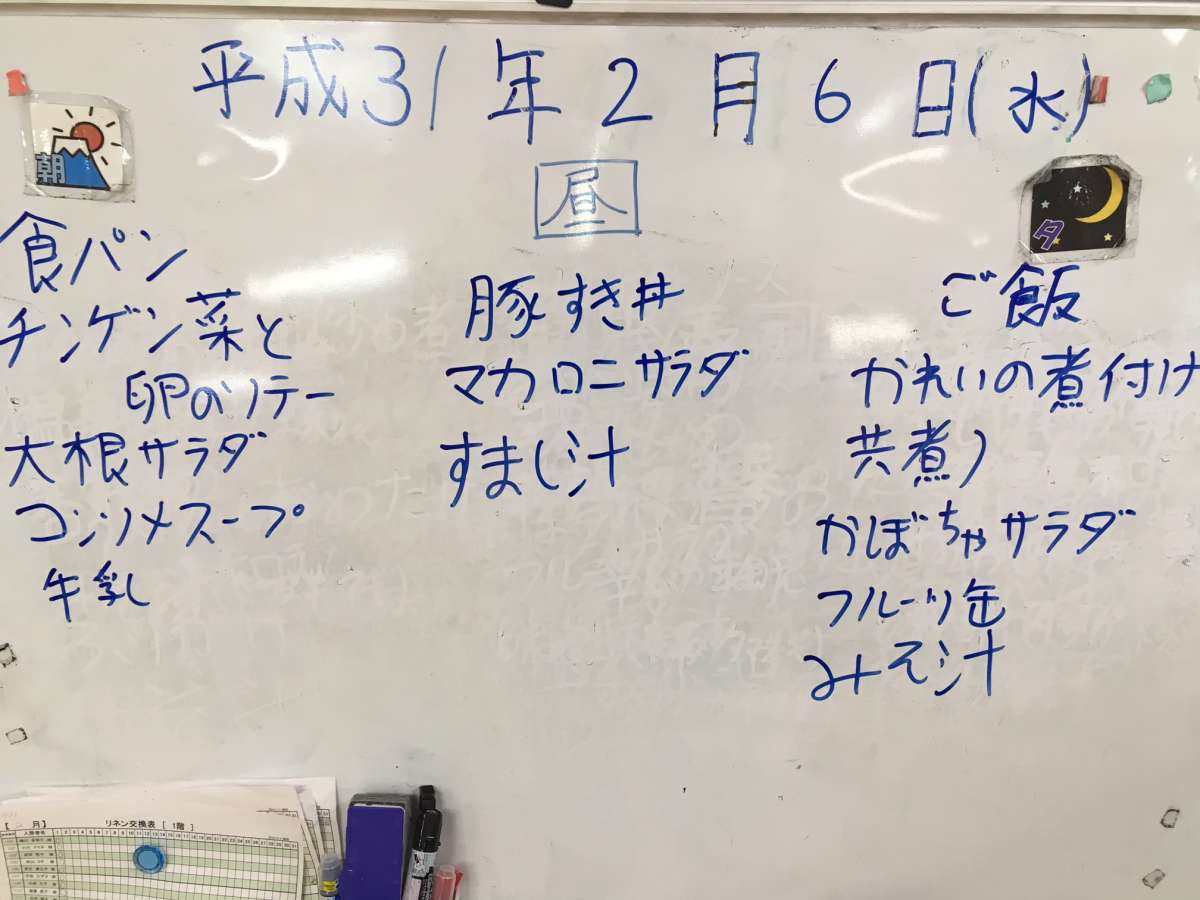 平成31年2月6日(水)
朝
食パン
チンゲン菜と
卵のソテー
大根サラダ
コンソメスープ
牛乳
昼
豚すき丼
マカロニサラダ
すまし汁
夕
ご飯
かれいの煮付け
共煮ノ
かぼちゃサラダ
フルーツ缶
みそ汁
【 二 月】 リネン交換表 [ 1階 ]